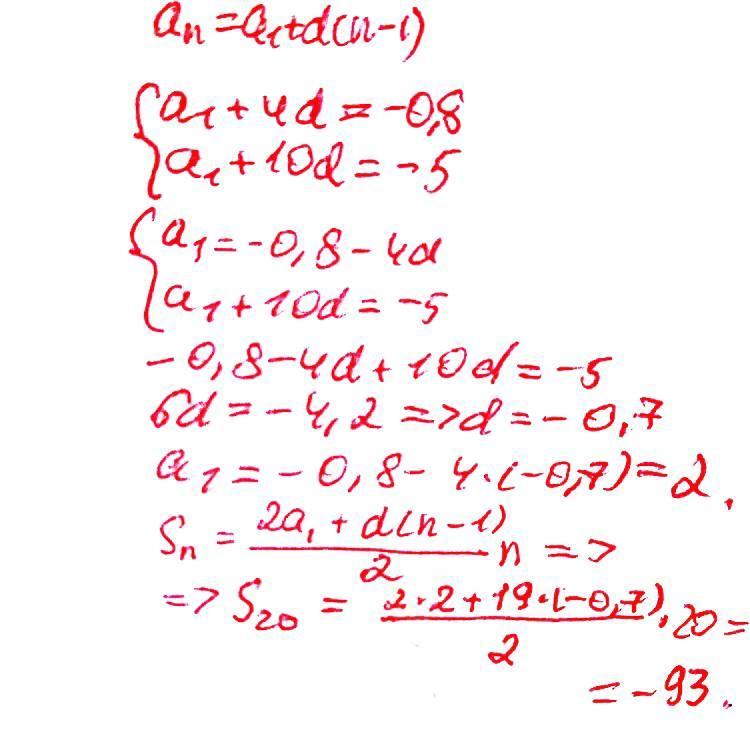 aₙ=a₁+d(n-1)
{a₁+4d=-0,8
a₁+10d=-5
{a₁=-0,8-4d
a₁+10d=-5
-0,8-4d+10d=-5
6d=-4,2=>d=-0,7
a₁=-0,8-4·(-0,7)=2.
Sₙ=(2a₁+d(n-1))/2 n=>
=>S₂₀=(2·2+19·(-0,7))/2·20=
=-93.